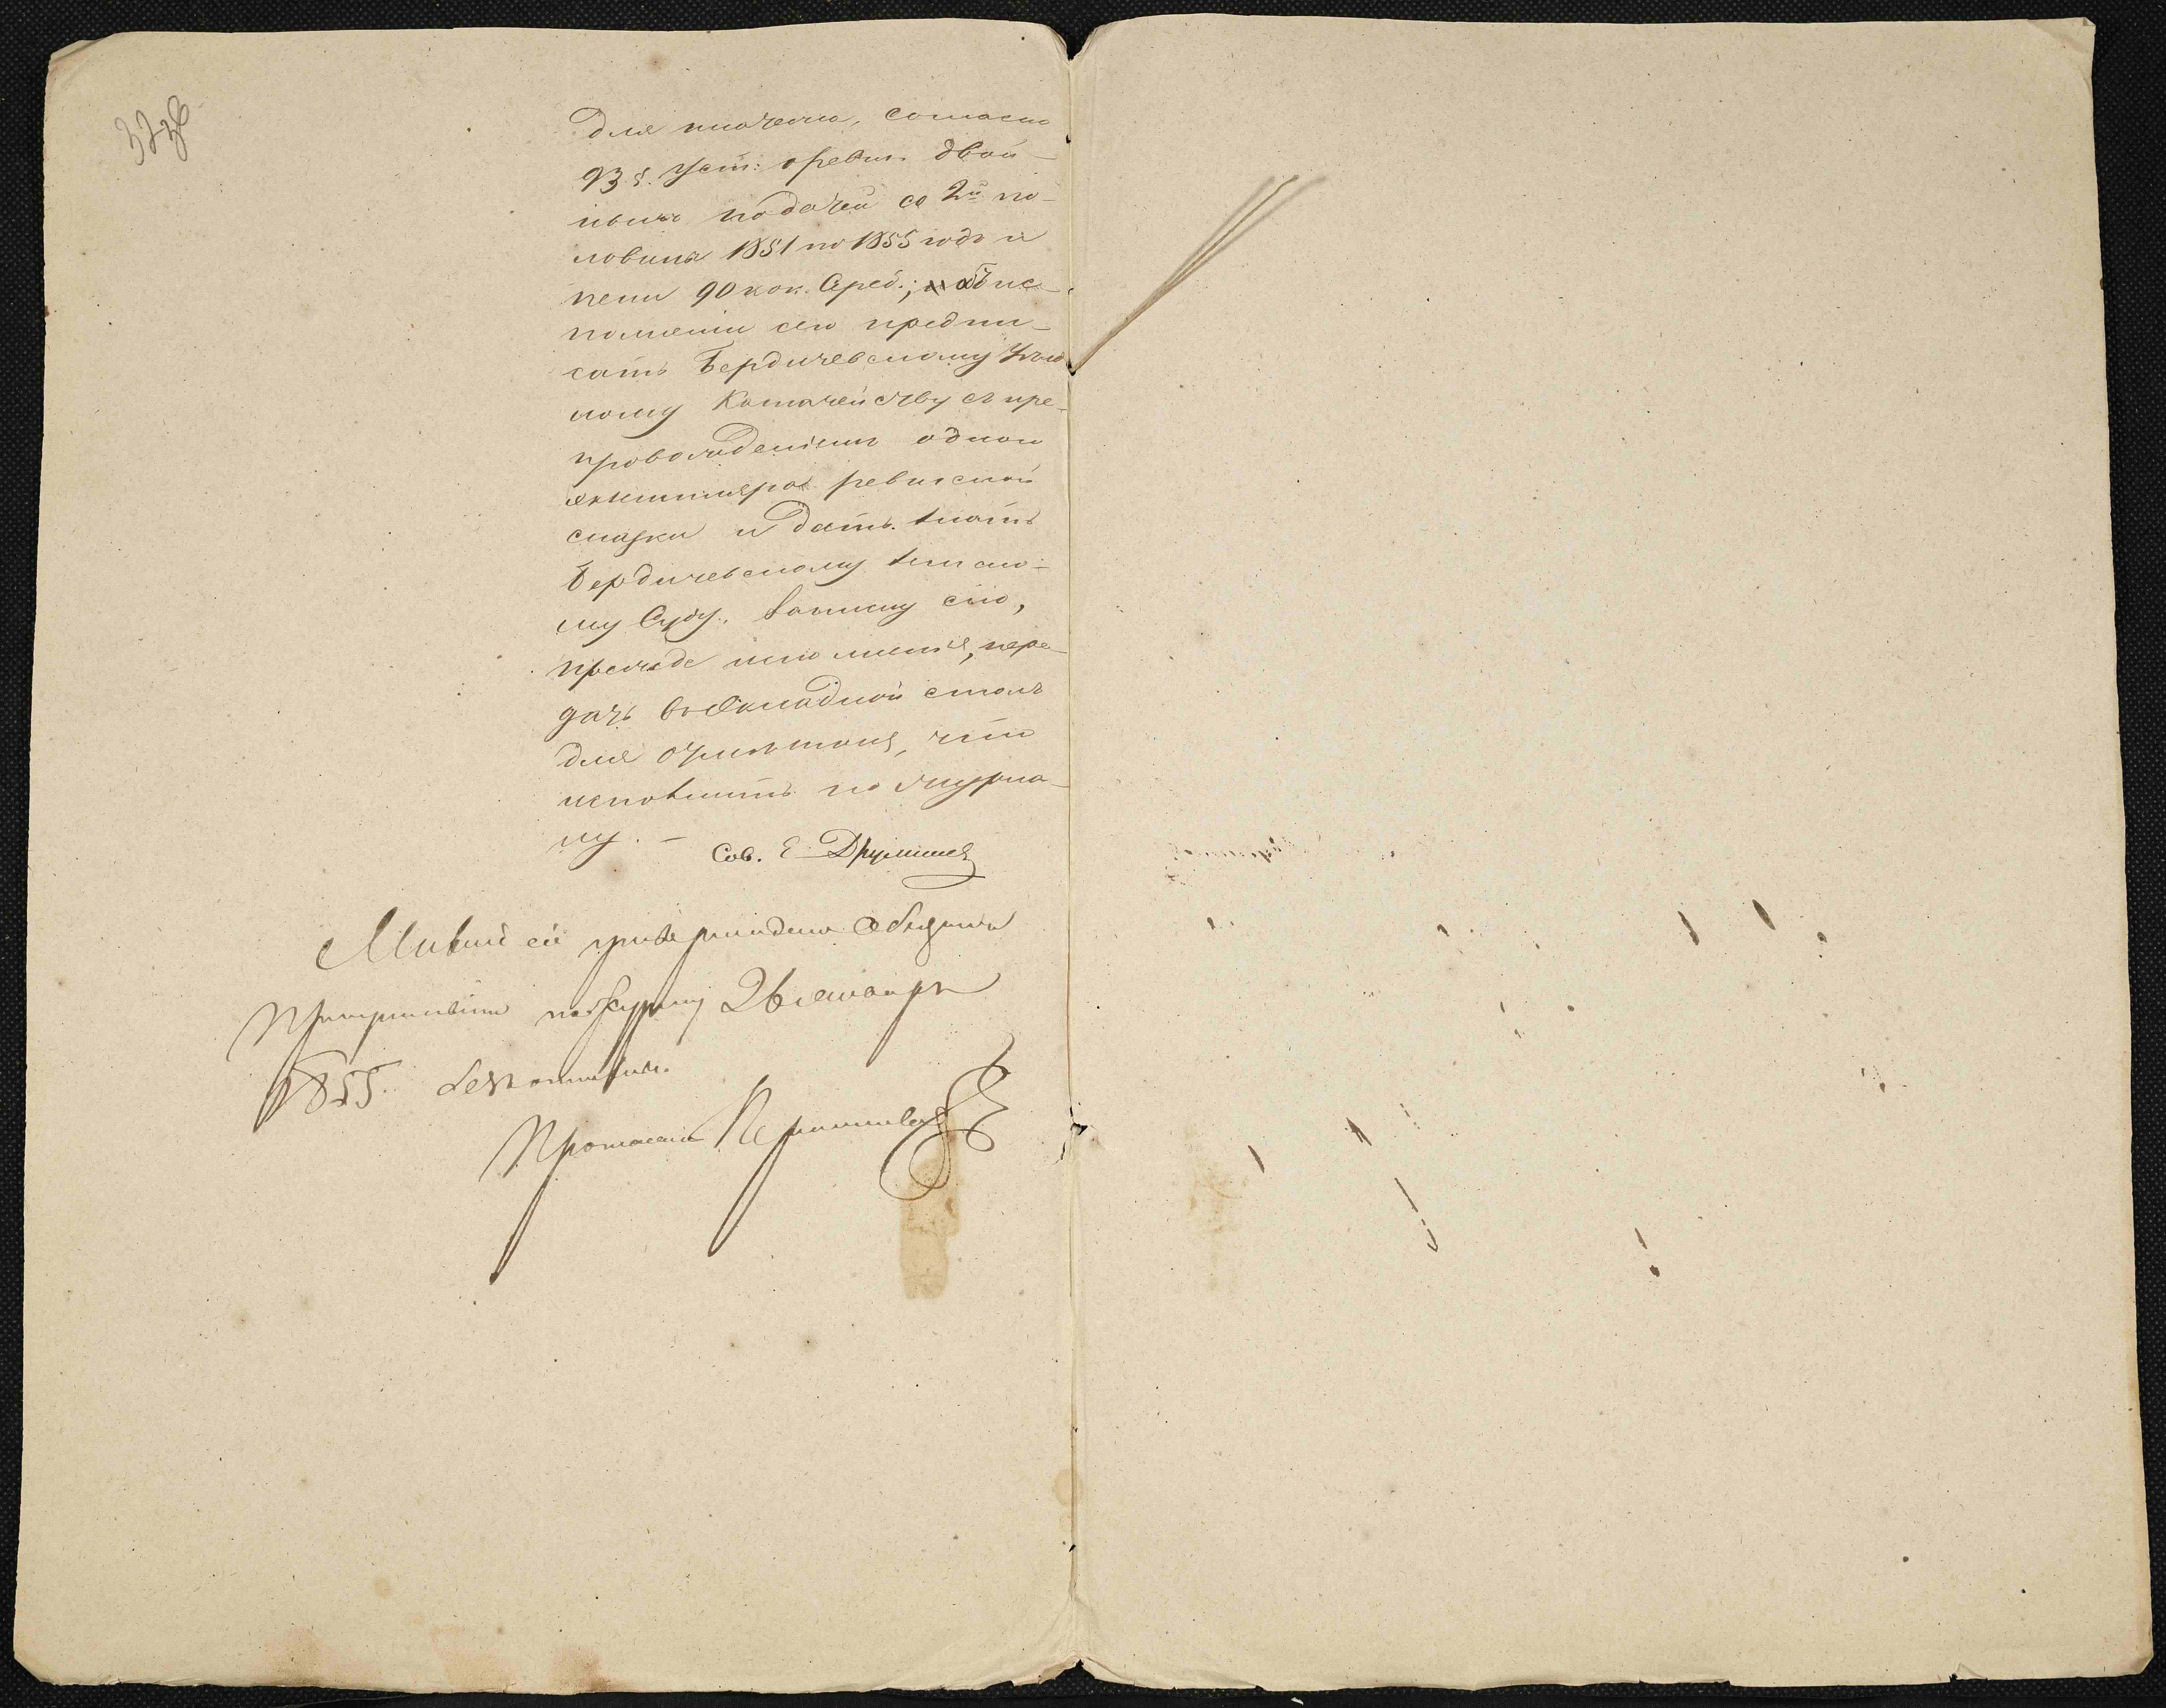 для платежа, согласно
93 §. Уст: о ревиз. двой-
ныхъ податей со 2й по-
ловины 1851 по 1855 годъ и
пени 90 коп. Сереб.; объ ис-
полненіи сего предпи-
сать Бердичевскому Уѣзд
ному Казначейству съ пре-
провожденіемъ одного
экземпляра ревизской
сказки и дать знать
Бердичевскому Земско-
му Суду. Записку сію,
прежде исполненія, пере-
дать въ Окладной столъ
для отмѣтки, что
исполнить по журна-
лу. —
Сов. Е.
Мнѣніе сіе утверждено Общимъ
Присутствіемъ по журналу 26 января
1855.